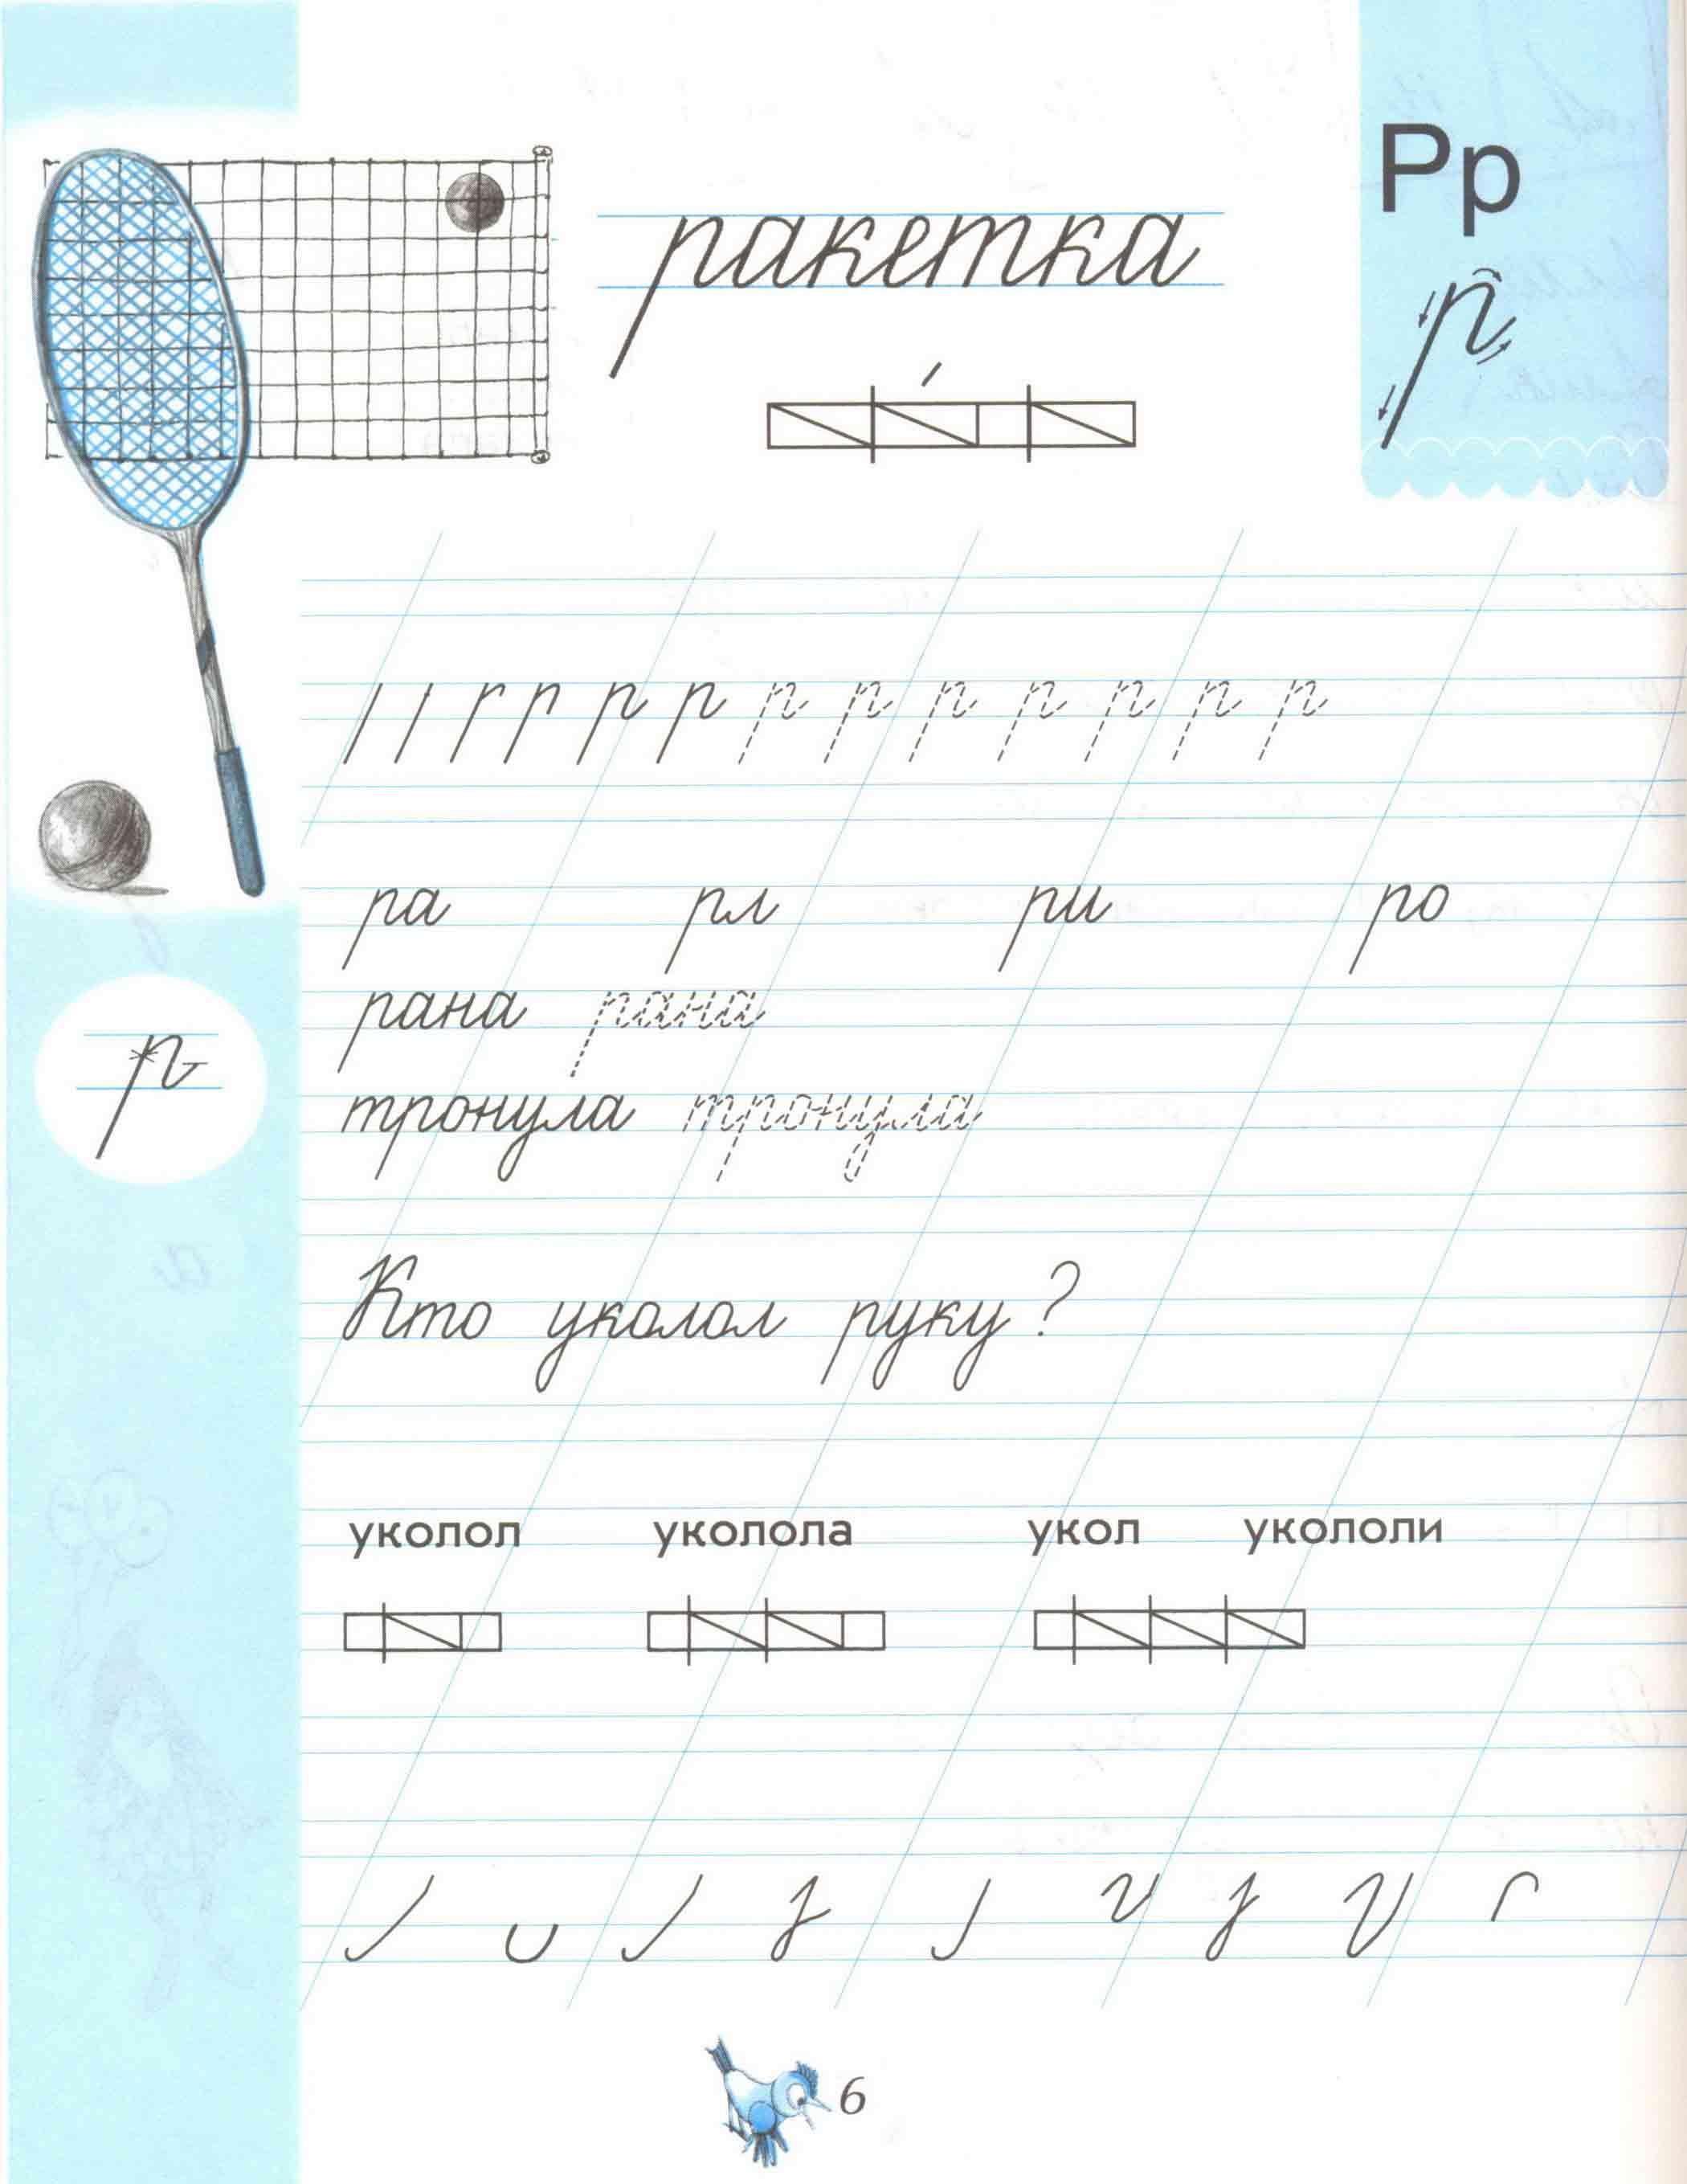 Рр
ракетка
р
р р р р р р р р р
ра рл ри ро
рана рана
р
тронула тронула
Кто уколол руку?
уколол уколола укол укололи
6